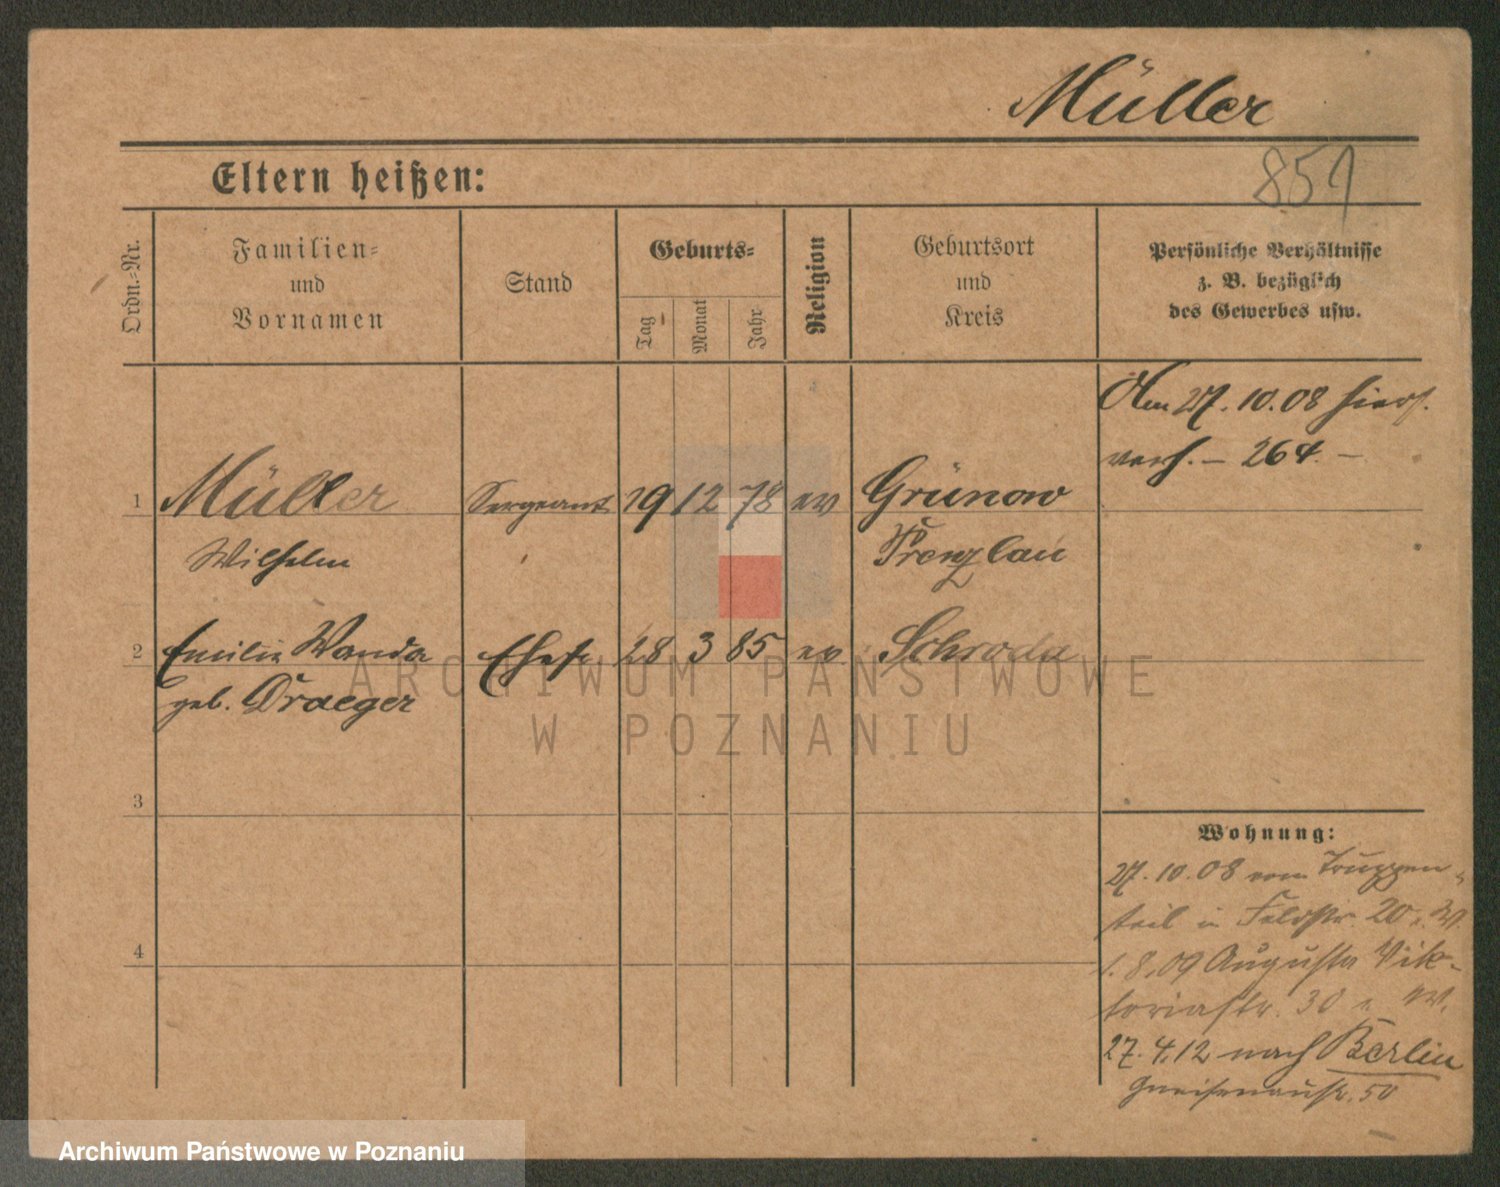 Müller
851
Eltern heißen:
Ordn.-Nr.
Familien-
und
Vornamen
Stand
Geburts-
Tag
Monat
Jahr
Religion
Geburtsort
und
Kreis
Persönliche Verhältnisse
z. B. bezüglich
des Gewerbes usw.
Am 27. 10. 08 hiers.
verh. – 264. –
1 Müller Sergeant 19 12 78 ev Grünow
Wilhelm Prenzlau
2 Emilie Wanda Ehefr 28 3 85 ev Schroda
geb. Draeger
3
4
Wohnung:
27. 10. 08 vom Truppen-
teil in Feldstr. 20 W.
1. 8. 09 Augusta Vik-
toriastr. 30 W.
27. 4. 12 nach Berlin
Gneisenaustr. 50
ARCHIWUM PAŃSTWOWE
W POZNANIU
Archiwum Państwowe w Poznaniu